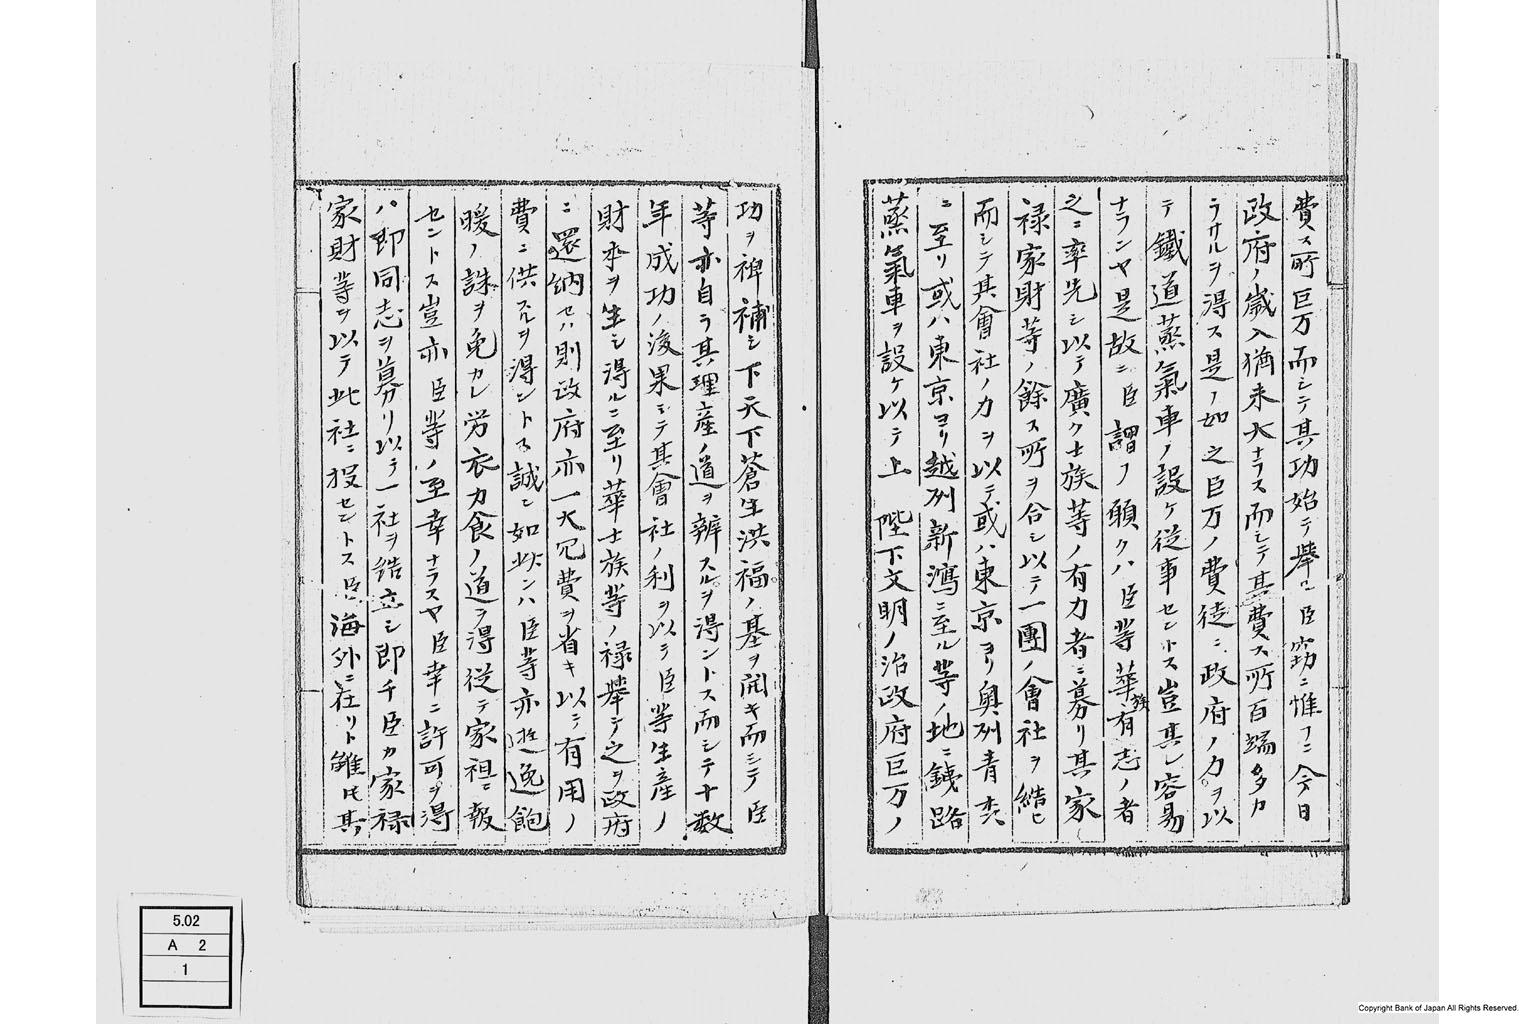 費ス所巨万而シテ其功始テ挙ヒ臣窃ニ惟フニ今日
政府ノ歳入猶未大ナラス而シテ其費ス所百端多カ
ラサルヲ得ス是ノ如之巨万ノ費徒ニ政府ノ力ヲ以
テ鐵道蒸氣車ノ設ケ従事セントス豈其レ容易
ナランヤ是故ニ臣謂フ願クハ臣等華族有志ノ者
之ニ率先シ以テ廣ク士族等ノ有力者ニ募リ其家
禄家財等ノ餘ス所ヲ合シ以テ一團ノ會社ヲ結ヒ
而シテ其會社ノ力ヲ以テ或ハ東京ヨリ奥州青森
ニ至リ或ハ東京ヨリ越州新潟ニ至ル等ノ地ニ銕路
蒸氣車ヲ設ケ以テ上 陛下文明ノ治政府巨万ノ
功ヲ裨補シ下天下蒼生洪福ノ基ヲ開キ而シテ臣
等亦自ラ其理産ノ道ヲ辨スルヲ得ントス而シテ十数
年成功ノ後果シテ其會社ノ利ヲ以テ臣等生産ノ
財本ヲ生シ得ルニ至リ華士族等ノ禄挙テ之ヲ政府
ニ還納セハ則政府亦一大冗費ヲ省キ以テ有用ノ
費ニ供スルヲ得ントス誠ニ如此ンハ臣等亦遊逸飽
暖ノ誅ヲ免カレ労衣力食ノ道ヲ得従テ家祖ニ報
セントス豈亦臣等ノ至幸ナラスヤ臣幸ニ許可ヲ得
ハ即同志ヲ募リ以テ一社ヲ結立シ即チ臣カ家禄
家財等ヲ以テ此社ニ投セントス臣海外ニ在リト雖トモ其
5.02
A 2
1
Copyright Bank of Japan All Rights Reserved.